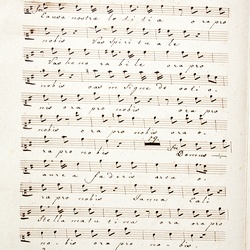 causa nostra letitia ora pro
nobis Vas Spirituale
Vas honorabile ora pro
nobis vas insigne devoti o-
nis ora pro nobis ora pro
nobis ora pro nobis ora o-
ra pro nobis Domus
aurea fæderis arca o-
ra pro nobis Janua Cæli
Stella matutina ora ora pro
no-bis ora pro no-bis